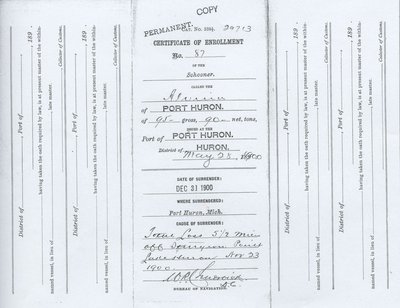 COPY
PERMANENT. (Cat. No. 529½.) 29713
CERTIFICATE OF ENROLLMENT
No. 87
OF THE
Schooner.
CALLED THE
of PORT HURON.
of 95 gross, 90 net, tons,
ISSUED AT THE
Port of PORT HURON.
District of HURON.
May 28, 1900
DATE OF SURRENDER:
DEC 31 1900
WHERE SURRENDERED:
Port Huron, Mich.
CAUSE OF SURRENDER:
Total Loss 5½ miles
off Point
Nov 23
1900.
BUREAU OF NAVIGATION.
District of , Port of , 189
having taken the oath required by law, is at present master of the within-
named vessel, in lieu of , late master.
, Collector of Customs.
District of , Port of , 189
having taken the oath required by law, is at present master of the within-
named vessel, in lieu of , late master.
, Collector of Customs.
District of , Port of , 189
having taken the oath required by law, is at present master of the within-
named vessel, in lieu of , late master.
, Collector of Customs.
District of , Port of , 189
having taken the oath required by law, is at present master of the within-
named vessel, in lieu of , late master.
, Collector of Customs.